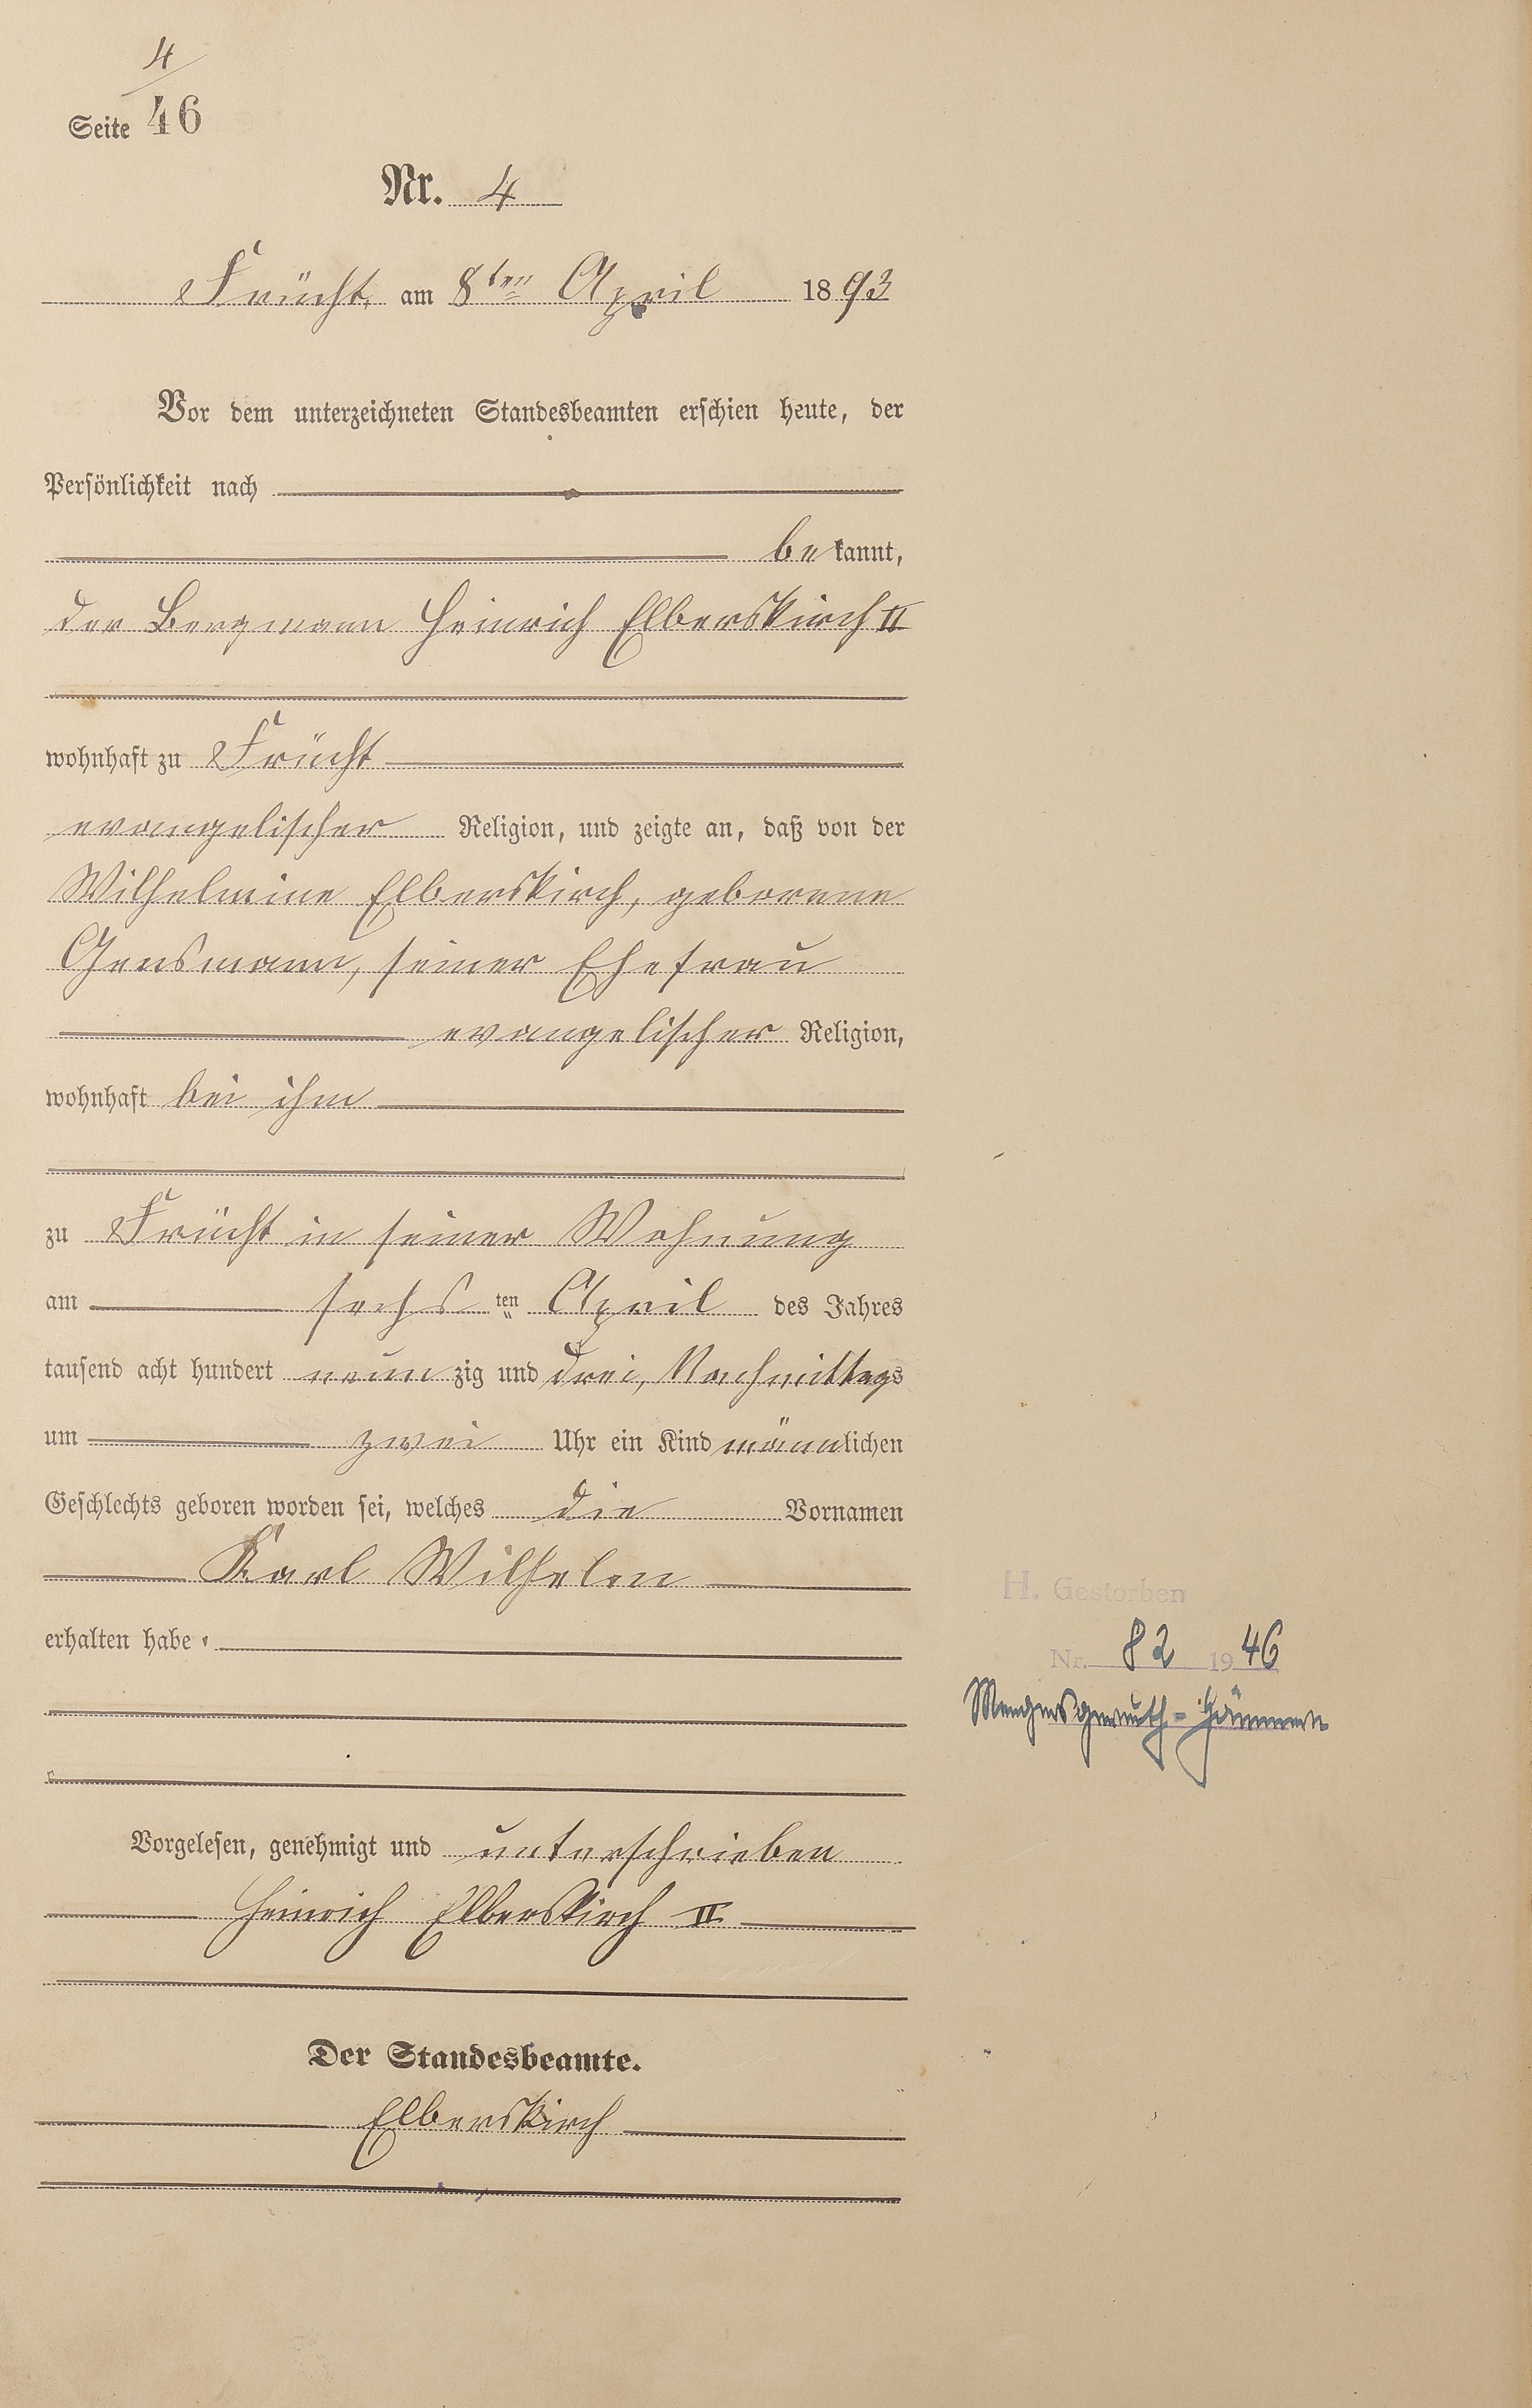 4
Seite 46
Nr. 4
Frücht, am 8ten April 1893
Vor dem unterzeichneten Standesbeamten erschien heute, der
Persönlichkeit nach
bekannt,
der Bergmann Heinrich Elberskirch II
wohnhaft zu Frücht
evangelischer Religion, und zeigte an, daß von der
Wilhelmine Elberskirch, geborene
Gensmann, seiner Ehefrau
evangelischer Religion,
wohnhaft bei ihm
zu Frücht in seiner Wohnung
am sechsten April des Jahres
tausend acht hundert neunzig und drei, Nachmittags
um zwei Uhr ein Kind männlichen
Geschlechts geboren worden sei, welches die Vornamen
Karl Wilhelm
erhalten habe.
H. Gestorben
Nr. 82 1946
Mengersgereuth-Hämmern
Vorgelesen, genehmigt und unterschrieben
Heinrich Elberskirch II
Der Standesbeamte.
Elberskirch